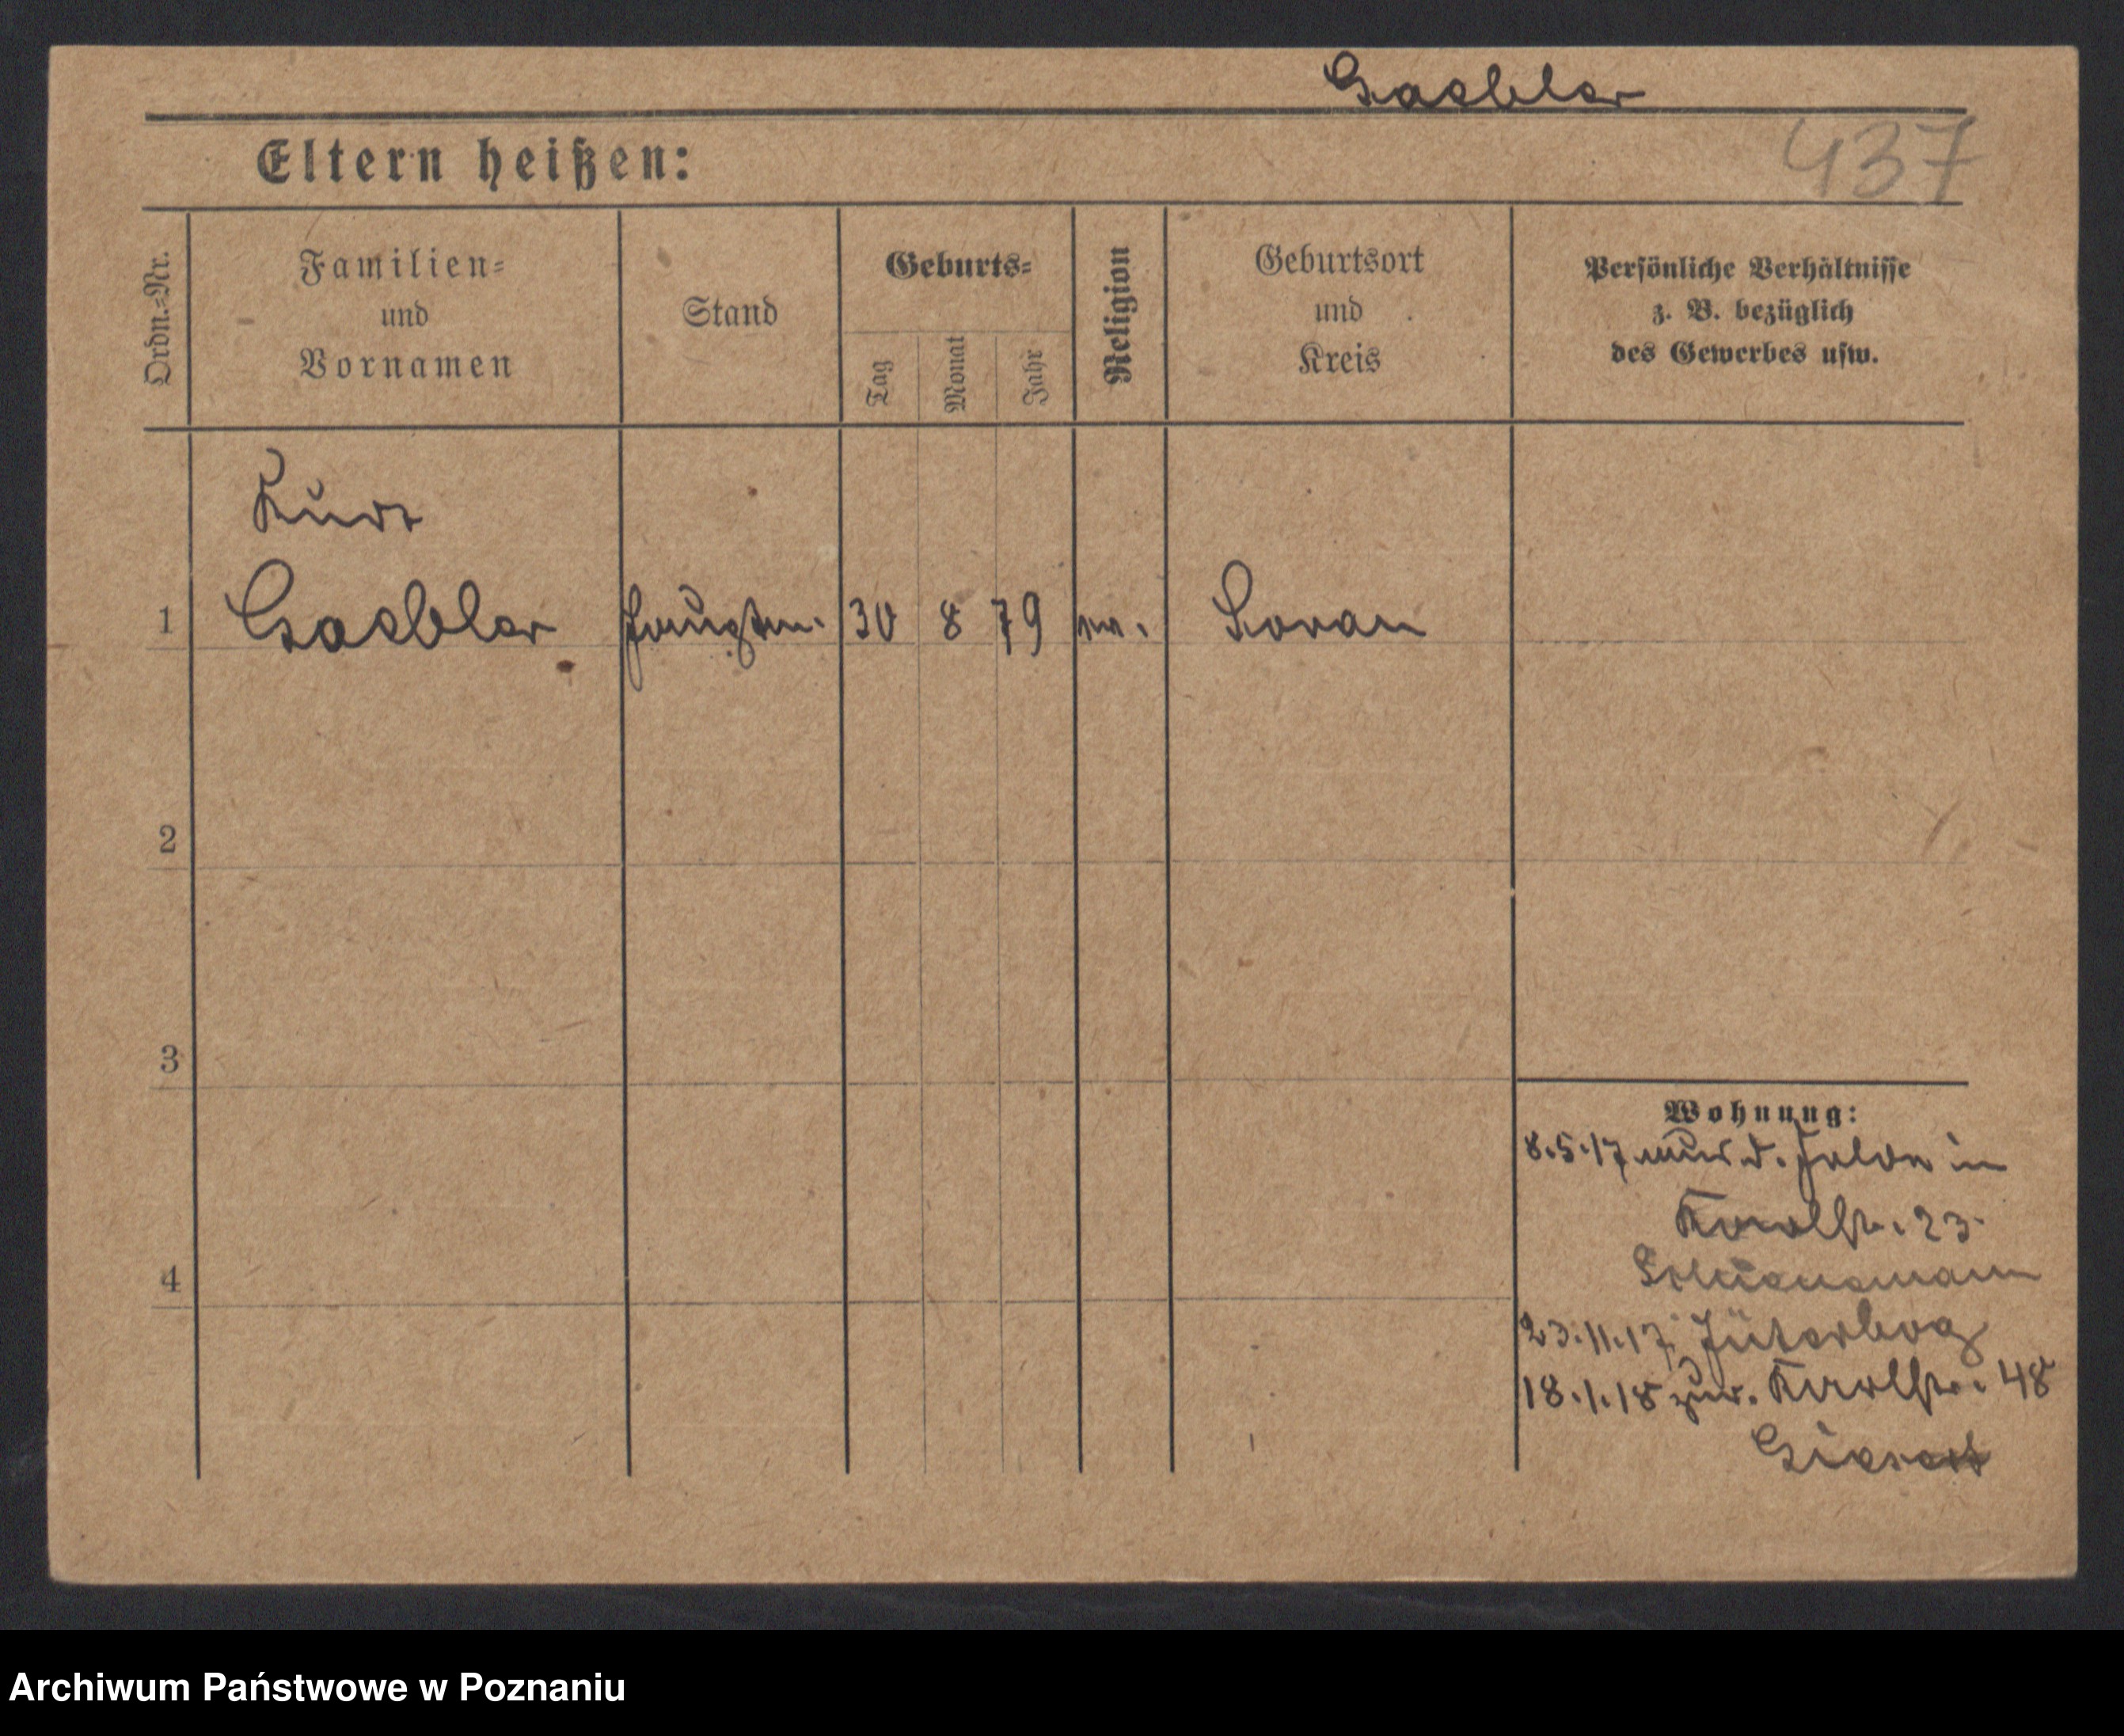 Gaebler
437
Eltern heißen:
Ordn.-Nr.
Familien-
und
Vornamen
Stand
Geburts-
Tag
Monat
Jahr
Religion
Geburtsort
und
Kreis
Persönliche Verhältnisse
z. B. bezüglich
des Gewerbes usw.
Kurt
1 Gaebler Hauptm. 30 8 79 ev. Sorau
2
3
Wohnung:
8.5.17 aus d. Felde in
23.
4
23.11.17. Jüterbog
18.1.18 zur. 48
Archiwum Państwowe w Poznaniu